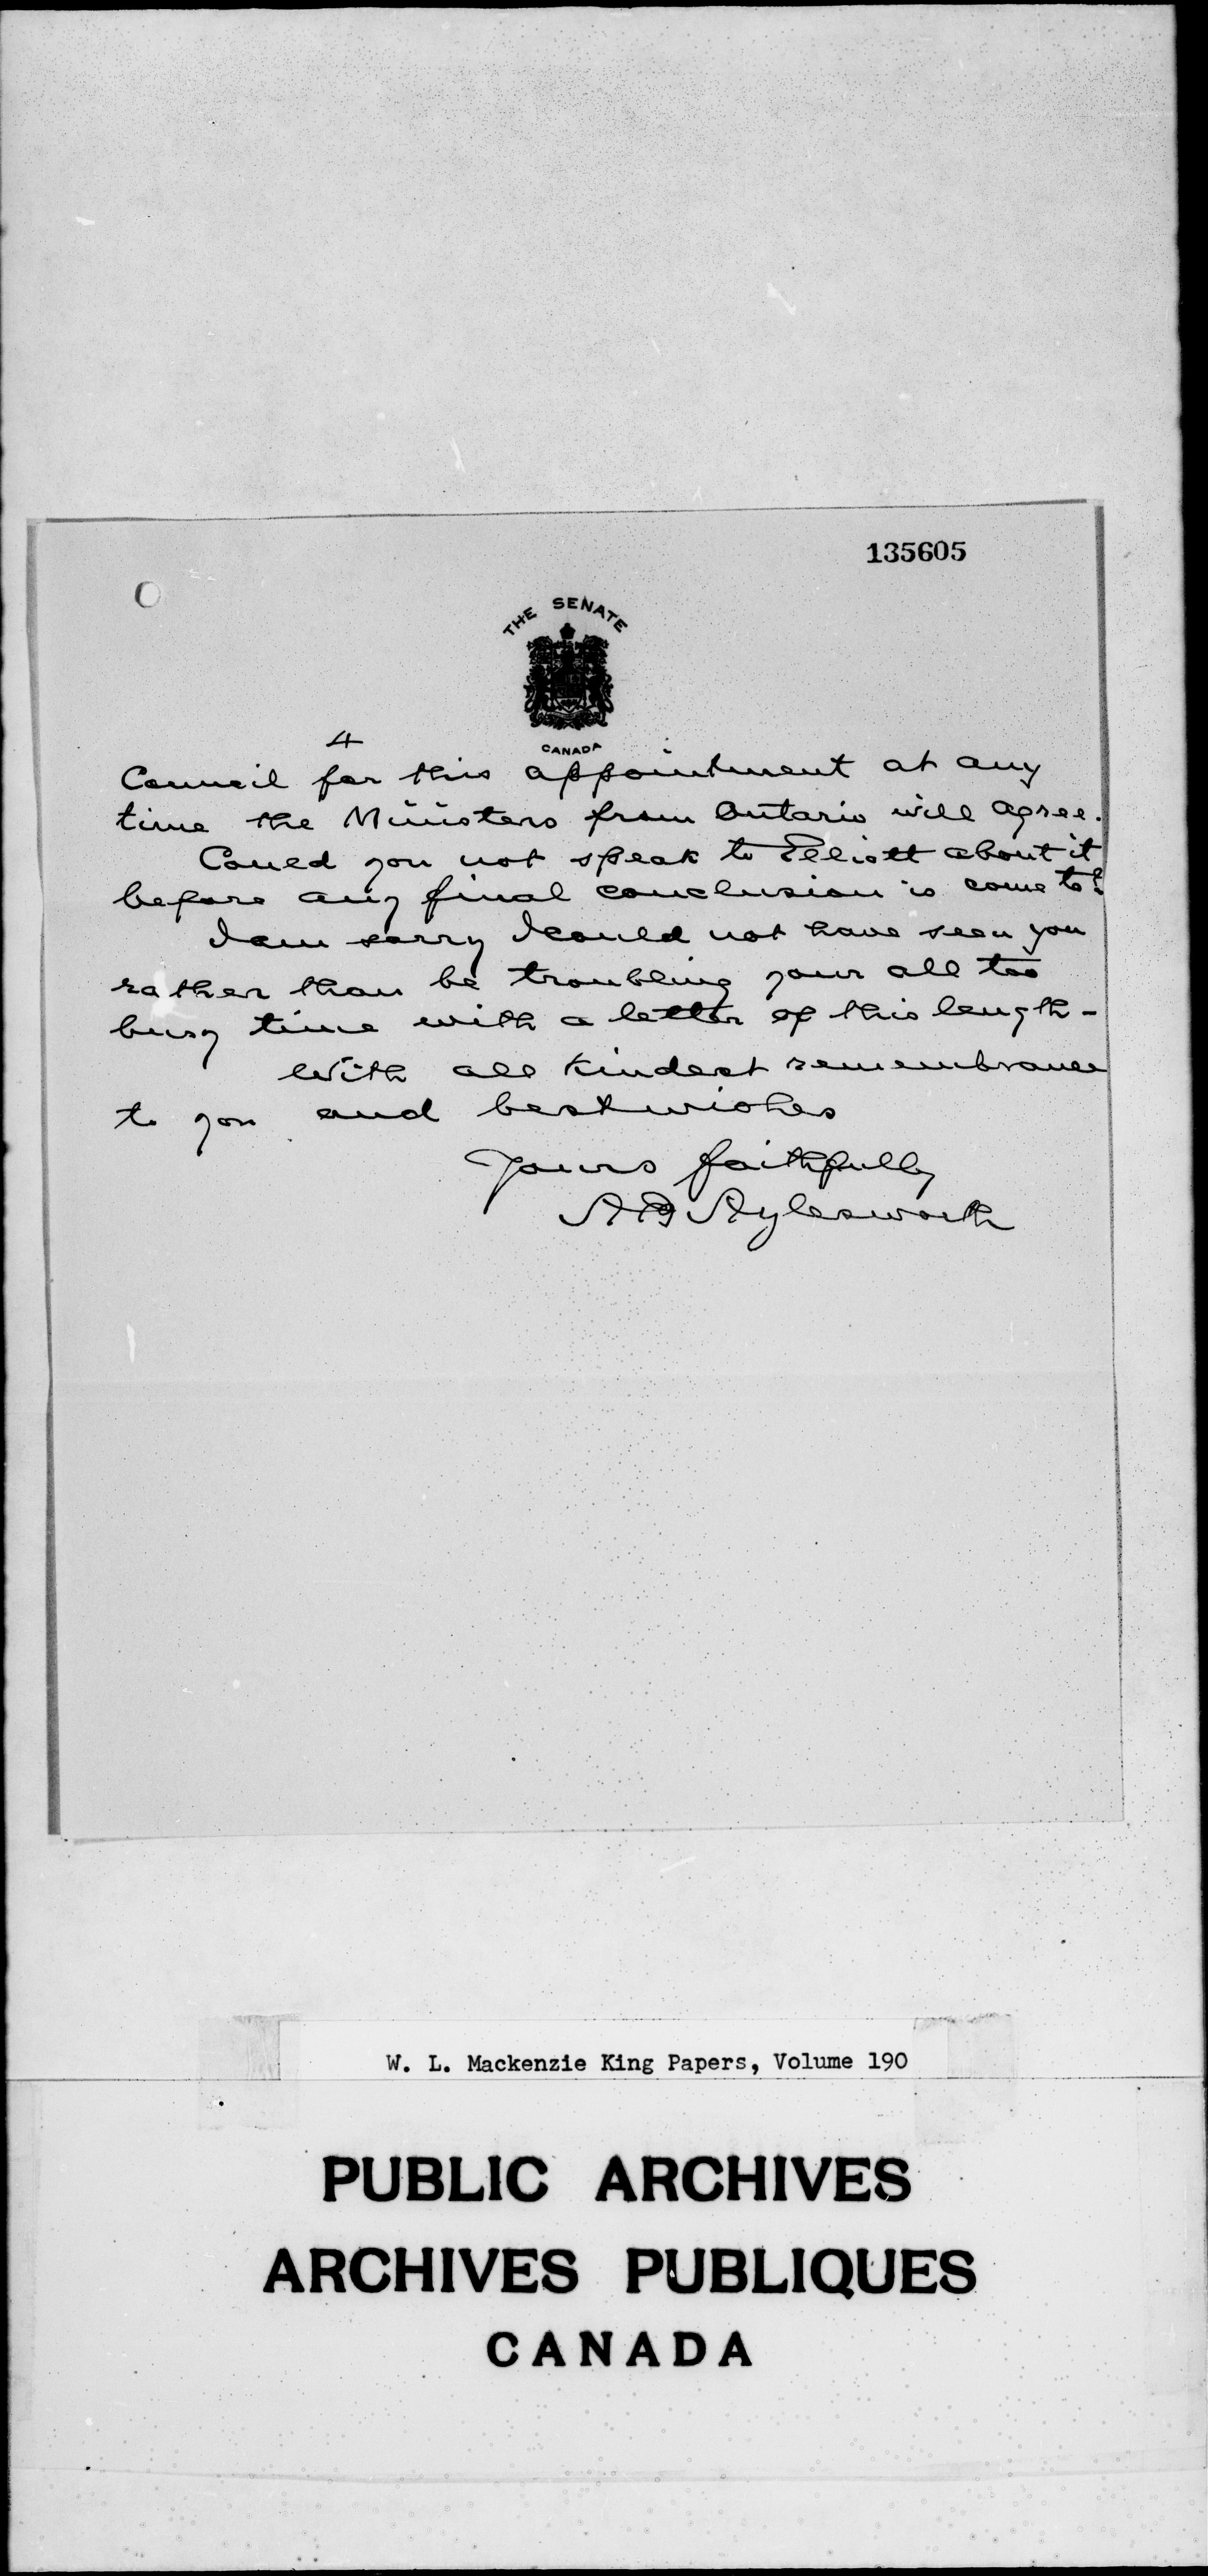 135605
THE SENATE
CANADA
4
Council for this appointment at any
time the Ministers from Ontario will agree.
Could you not speak to Elliott about it
before any final conclusion is come to?
I am sorry I could not have seen you
rather than be troubling your all too
busy time with a letter of this length -
With all kindest remembrance
to you and best wishes
Yours faithfully
A B Aylesworth
W. L. Mackenzie King Papers, Volume 190
PUBLIC ARCHIVES
ARCHIVES PUBLIQUES
CANADA